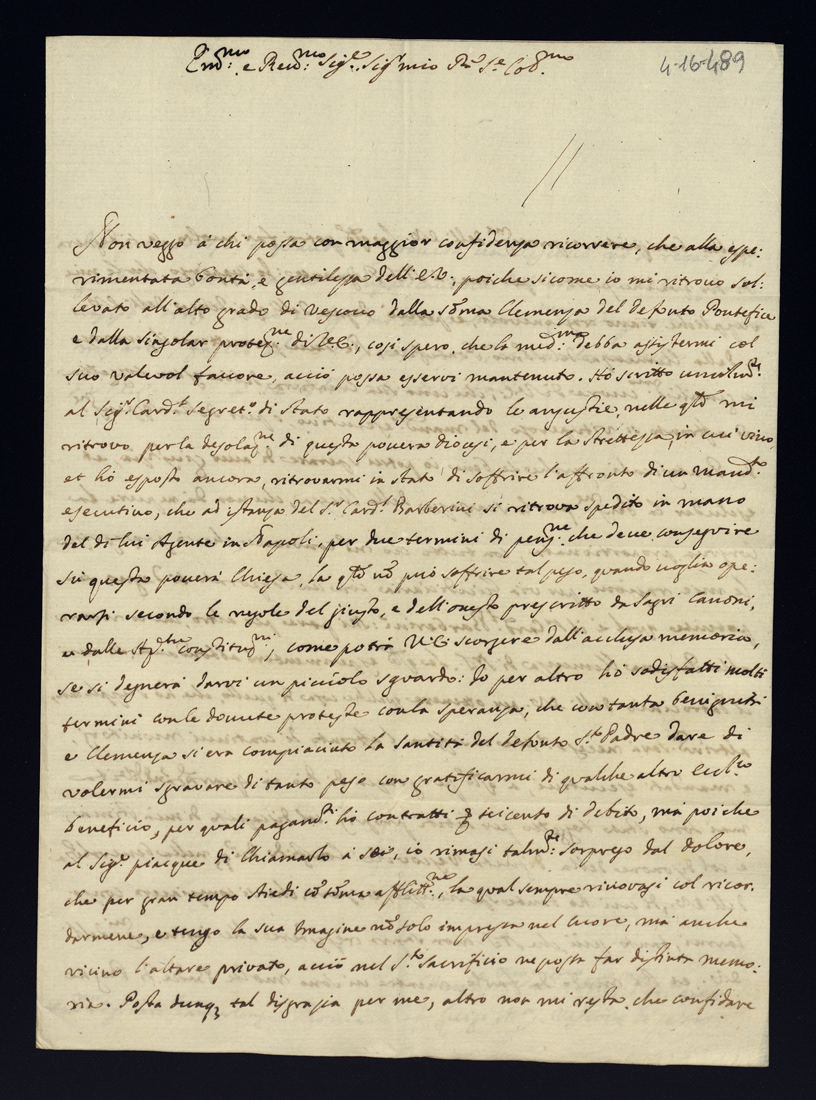 Em.mo e Rev.mo Sig.re Sig.r mio P.ne Col.mo
4-16-489
Non veggo à chi possa con maggior confidenza ricorrere, che alla espe:
rimentata bontà, e gentilezza dell'E.V. poiche sicome io mi ritrovo sol:
levato all'alto grado di Vescovo dalla som̃a Clemenza del defonto Pontefice
e dalla singolar protez.ne di V.E., così spero, che la med.ma debba assistermi col
suo valevol favore, acciò possa esservi mantenuto. Hò scritto umilm.te
al Sig.r Card.l Segret.o di Stato rappresentando le angustie, nelle q̃li mi
ritrovo per la desolaz.ne di questa povera diocesi, e per la strettezza, in cui vivo,
et hò esposto ancora, ritrovarmi in stato di soffrire l'affronto di un mand.to
esecutivo, che ad istanza del S.r Card.l Barberini si ritrova spedito in mano
del di lui Agente in Napoli, per due termini di pens.ne che deve conseguire
sù questa povera Chiesa, la q̃le nõ può soffrire tal peso, quando voglia ope:
rarsi secondo le regole del giusto, e dell'onesto prescritto da Sagri Canoni,
e dalle Ap.che Constituz.ni, come potrà V.E. scorgere dall'acclusa memoria,
se si degnerà darvi un picciolo sguardo: Io per altro hò sodisfatti molti
termini con le dovute proteste con la speranza, che con tanta benignità
e Clemenza si era compiaciuto la Santità del defonto S.to Padre dare di
volermi sgravare di tanto peso con gratificarmi di qualche altro Eccl.co
beneficio, per quali pagam.ti hò contratti seicento di debito, mà poiche
al Sig.re piacque di chiamarlo à sè, io rimasi talm.te sorpreso dal dolore,
che per gran tempo stiedi cõ som̃a afflitt.ne, la qual sempre rinovasi col ricor:
darmene, e tengo la sua Imagine nõ solo impressa nel cuore, mà anche
vicino l'altare privato, acciò nel S.to Sacrificio ne possa far distinta memo:
ria. Posta dunq; tal disgrazia per me, altro non mi resta, che confidare